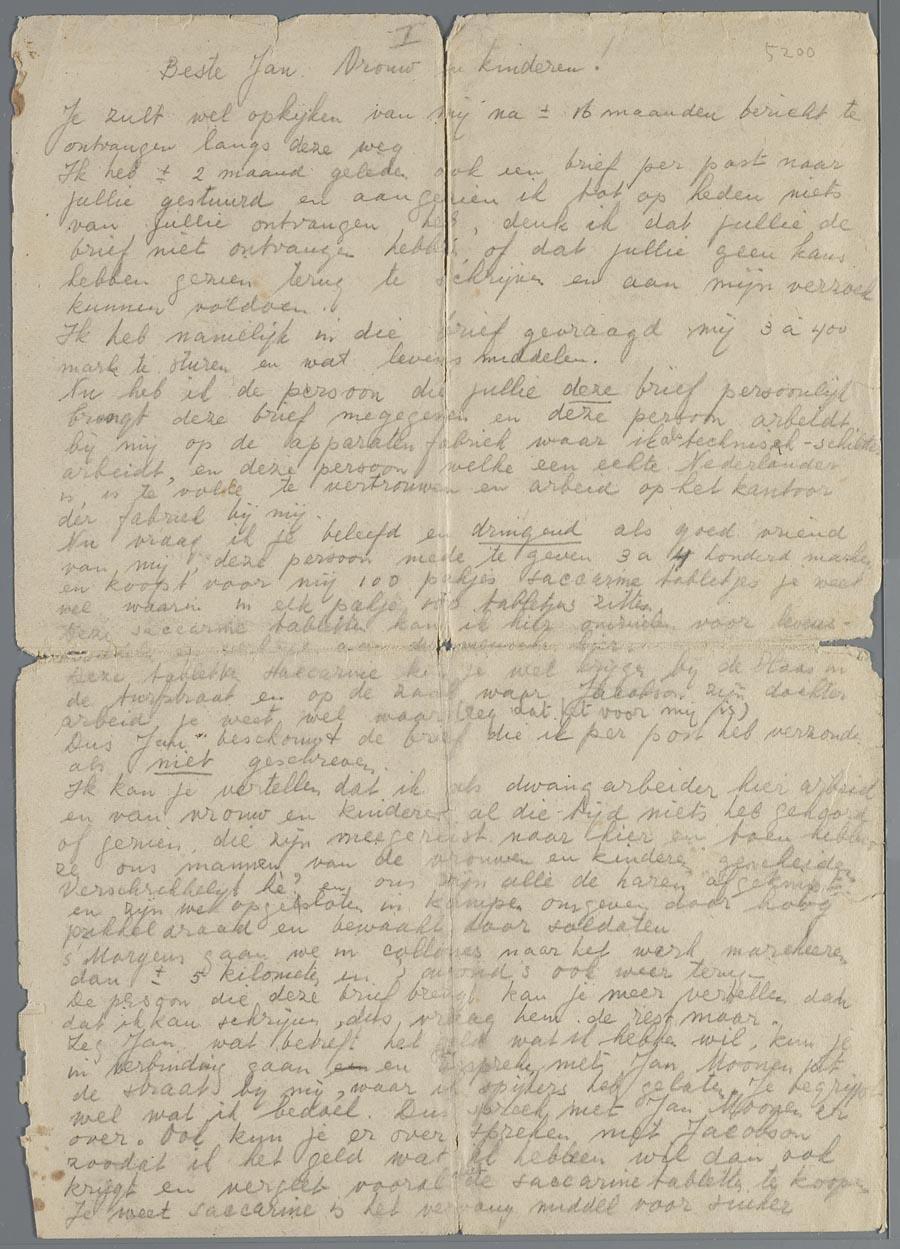 I
5200
Beste Jan. Vrouw en kinderen!
Je zult wel opkijken van mij na ± 16 maanden bericht te
ontvangen langs deze weg
Ik heb ± 2 maand geleden ook een brief per post naar
jullie gestuurd en aangezien ik tot op heden niets
van jullie ontvangen heb, denk ik dat jullie de
brief niet ontvangen hebben of dat jullie geen kans
hebben gezien terug te schrijven en aan mijn verzoek
kunnen voldoen.
Ik heb namelijk in die brief gevraagd mij 3 à 400
mark te sturen en wat levensmiddelen.
Nu heb ik de persoon die jullie deze brief persoonlijk
brengt deze brief megegeven en deze persoon arbeidt
bij mij op de apparatenfabriek waar ik als technisch-schilder
arbeidt, en deze persoon welke een echte Nederlander
is, is te volle te vertrouwen en arbeid op het kantoor
der fabriek bij mij.
Nu vraag ik je beleefd en dringend als goed vriend
van mij, deze persoon mede te geven 3 a 4 honderd marken
en koopt voor mij 100 pakjes saccarine tabletjes je weet
wel waarin in elk pakje 100 tabletjes zitten.
Deze saccarine tabletten kan ik hier omruilen voor levens-
Deze tablette saccarine kun je wel krijgen bij de Haas in
de Turfstraat en op de zaal waar Jacobson zijn dochter
arbeid je weet wel waar (zeg dat het voor mij is)
Dus Jan beschouwt de brief die ik per post heb verzonden
als niet geschreven.
Ik kan je vertellen dat ik als dwangarbeider hier arbeid
en van vrouw en kinderen al die tijd niets heb gehoord
of gezien, die zijn meegereist naar hier en toen hebben
ze ons mannen van de vrouwen en kinderen gescheiden
Verschrikkelijk hè? en ons zijn alle de haren afgeknipt
en zijn we opgesloten in kampen omgeven door hoog
prikkeldraad en bewaakt door soldaten
's Morgens gaan we in collonnes naar het werk marcheeren
dan ± 5 kilometer en 's avonds ook weer terug
De persoon die deze brief brengt kan je meer vertellen dan
dat ik kan schrijven, dus vraag hem de rest maar.
Zeg Jan wat betreft het geld wat ik hebben wil, kun je
in verbinding gaan en spreken met Jan Moonen uit
de straat bij mij, waar ik spijkers heb gelaten. Je begrijpt
wel wat ik bedoel. Dus spreek met Jan Moonen er
over. Ook kun je er over spreken met Jacobson
zoodat ik het geld wat ik hebben wil dan ook
krijgt en vergeet vooral de saccarine tablette te koopen
Je weet saccarine is het vervang middel voor suiker